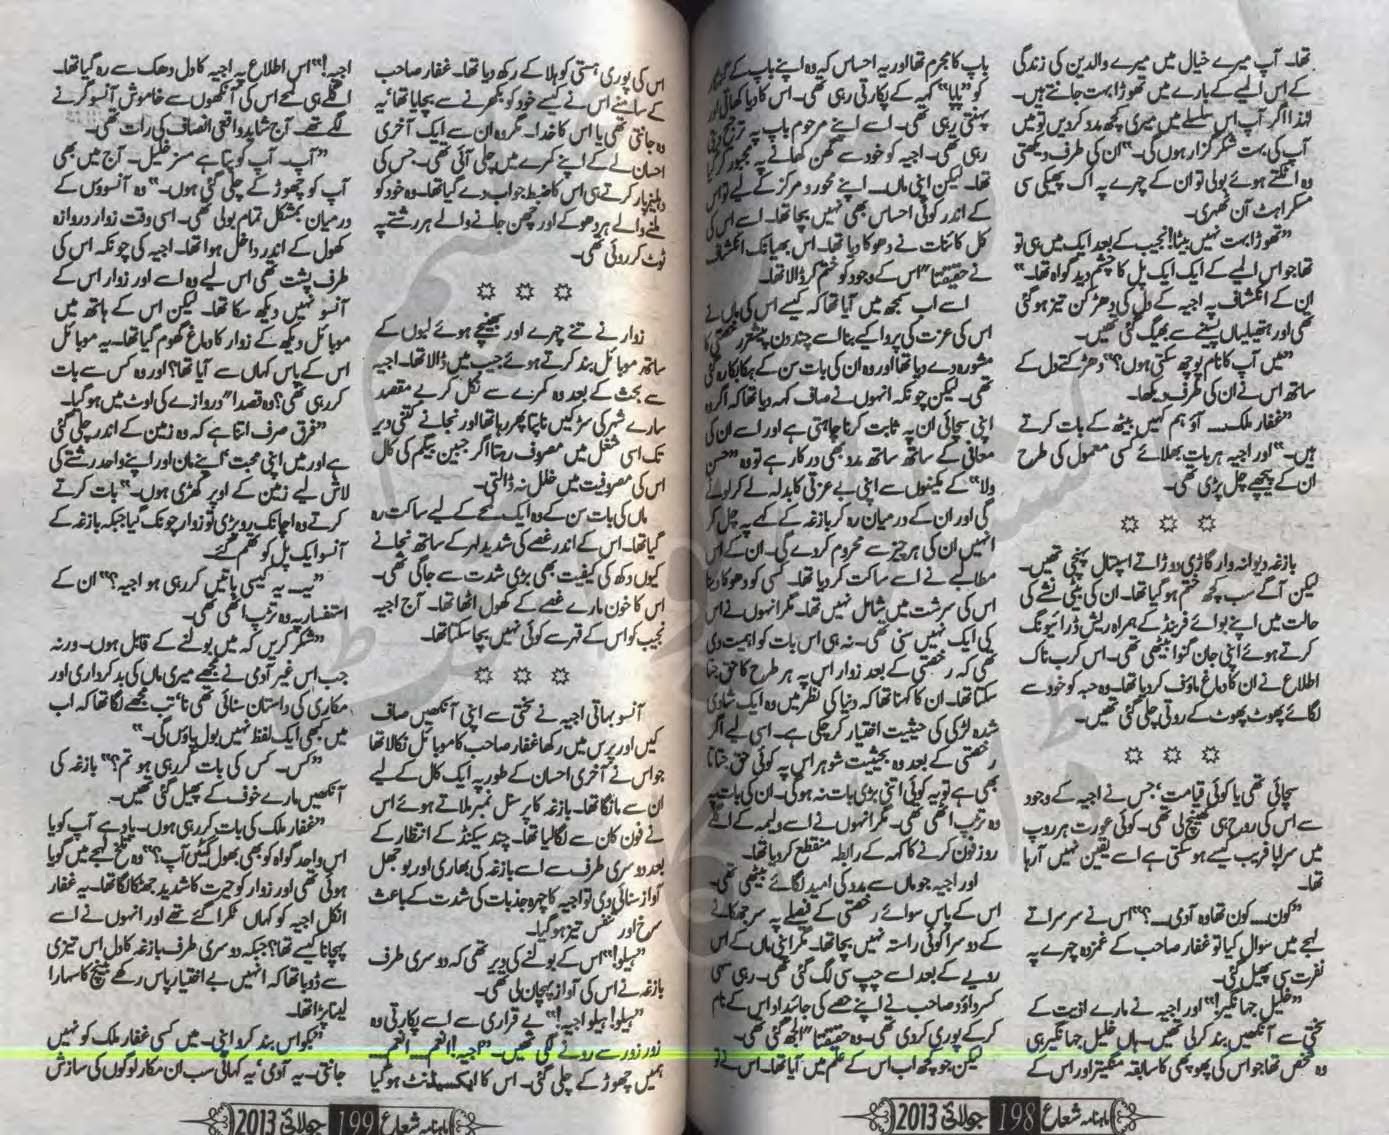 تھا۔ آپ میرے خیال میں میرے والدین کی زندگی
کے اس المیے کے بارے میں تھوڑا بہت جانتے ہیں۔
لہٰذا اگر آپ اس سلسلے میں میری کچھ مدد کردیں تو میں
آپ کی بہت شکر گزار ہوں گی۔" ان کی طرف دیکھتی
وہ اٹکتے ہوئے بولی تو ان کے چہرے پہ اک پھیکی سی
مسکراہٹ آن ٹھہری۔
"تھوڑا بہت نہیں بیٹا! نجیب کے بعد ایک میں ہی تو
تھا جو اس المیے کے ایک ایک پل کا چشم دید گواہ تھا۔"
ان کے انکشاف پہ اجیہ کے دل کی دھڑکن تیز ہوگئی
تھی اور ہتھیلیاں پسینے سے بھیگ گئی تھیں۔
"میں آپ کا نام پوچھ سکتی ہوں؟" دھڑکتے دل کے
ساتھ اس نے ان کی طرف دیکھا۔
"غفار ملک۔۔۔ آؤ ہم کہیں بیٹھ کے بات کرتے
ہیں۔" اور اجیہ ہر بات بھلائے کسی معمول کی طرح
ان کے پیچھے چل پڑی تھی۔
بازغہ دیوانہ وار گاڑی دوڑاتے اسپتال پہنچی تھیں۔
لیکن آگے سب کچھ ختم ہوگیا تھا۔ ان کی بیٹی نشے کی
حالت میں اپنے بوائے فرینڈ کے ہمراہ ریش ڈرائیونگ
کرتے ہوئے اپنی جان گنوا بیٹھی تھی۔ اس کرب ناک
اطلاع نے ان کا دماغ ماؤف کردیا تھا۔ وہ حبہ کو خود سے
لگائے پھوٹ پھوٹ کے روتی چلی گئی تھیں۔
سچائی تھی یا کوئی قیامت، جس نے اجیہ کے وجود
سے اس کی روح ہی کھینچ لی تھی۔ کوئی عورت ہر روپ
میں سراپا فریب کیسے ہوسکتی ہے اسے یقین نہیں آرہا
تھا۔
"کون۔۔۔ کون تھا وہ آدمی۔۔۔؟" اس نے سرسراتے
لہجے میں سوال کیا تو غفار صاحب کے غمزدہ چہرے پہ
نفرت سی پھیل گئی۔
"خلیل جہانگیر!" اور اجیہ نے مارے اذیت کے
سختی سے آنکھیں بند کرلی تھیں۔ ہاں خلیل جہانگیر ہی
وہ شخص تھا جو اس کی پھوپھی کا سابقہ منگیتر اور اس کے
باپ کا مجرم تھا اور یہ احساس کہ وہ اپنے باپ کے
کو "پاپا" کہہ کے پکارتی رہی تھی۔ اس کا دیا کھاتی اور
پہنتی رہی تھی۔ اسے اپنے مرحوم باپ پہ ترجیح دیتی
رہی تھی۔ اجیہ کو خود سے گھن کھانے پہ مجبور کر گیا
تھا۔ لیکن اپنی ماں۔۔۔ اپنے محور و مرکز کے لیے تو اس
کے اندر کوئی احساس بھی نہیں بچا تھا۔ اسے اس کی
کل کائنات نے دھوکا دیا تھا۔ اس بھیانک انکشاف
نے حقیقتا" اس کے وجود کو ختم کر ڈالا تھا۔
اسے اب سمجھ میں آیا تھا کہ کیسے اس کی ماں نے
اس کی عزت کی پروا کیے بنا اسے چند دن پیشتر رخصتی کا
مشورہ دے دیا تھا اور وہ ان کی بات سن کے ہکا بکا رہ گئی
تھی۔ لیکن چونکہ انہوں نے صاف کہہ دیا تھا کہ اگر وہ
اپنی سچائی ان پہ ثابت کرنا چاہتی ہے اور اسے ان کی
معافی کے ساتھ ساتھ مدد بھی درکار ہے تو وہ "حسن
ولا" کے مکینوں سے اپنی بے عزتی کا بدلہ لے کر لوٹے
گی اور ان کے درمیان رہ کر بازغہ کے کہے پہ چل کر
انہیں ان کی ہر چیز سے محروم کردے گی۔ ان کے اس
مطالبے نے اسے ساکت کردیا تھا۔ کسی کو دھوکا دینا
اس کی سرشت میں شامل نہیں تھا۔ مگر انہوں نے اس
کی ایک نہیں سنی تھی۔ نہ ہی اس بات کو اہمیت دی
تھی کہ رخصتی کے بعد زوار اس پہ ہر طرح کا حق جتا
سکتا تھا۔ ان کا کہنا تھا کہ دنیا کی نظر میں وہ ایک شادی
شدہ لڑکی کی حیثیت اختیار کرچکی ہے۔ اس لیے اگر
رخصتی کے بعد وہ بحیثیت شوہر اس پہ کوئی حق جتاتا
بھی ہے تو یہ کوئی اتنی بڑی بات نہ ہوگی۔ ان کی بات پہ
وہ تڑپ اٹھی تھی۔ مگر انہوں نے اسے ولیمہ کے اگلے
روز فون کرنے کا کہہ کے رابطہ منقطع کردیا تھا۔
اور اجیہ جو ماں سے مدد کی امید لگائے بیٹھی تھی۔
اس کے پاس سوائے رخصتی کے فیصلے پہ سر جھکانے
کے دوسرا کوئی راستہ نہیں بچا تھا۔ مگر اپنی ماں کے اس
رویے کے بعد اسے چپ سی لگ گئی تھی۔ رہی سہی
کسر داؤد صاحب نے اپنے حصے کی جائیداد اس کے نام
کرکے پوری کردی تھی۔ وہ حقیقتا" الجھ گئی تھی۔
لیکن جو کچھ اب اس کے علم میں آیا تھا۔ اس نے تو
ماہنامہ شعاع 198 جولائی 2013
اس کی پوری ہستی کو ہلا کے رکھ دیا تھا۔ غفار صاحب
کے سامنے اس نے کیسے خود کو بکھرنے سے بچایا تھا' یہ
وہ جانتی تھی یا اس کا خدا۔ مگر وہ ان سے ایک آخری
احسان لے کے اپنے کمرے میں چلی آئی تھی۔ جس کی
دہلیز پار کرتے ہی اس کا ضبط جواب دے گیا تھا۔ وہ خود کو
ملنے والے ہر دھوکے اور چھن جانے والے ہر رشتے پہ
ٹوٹ کر روئی تھی۔
زوار نے تنے چہرے اور بھینچے ہوئے لبوں کے
ساتھ موبائل بند کرتے ہوئے جیب میں ڈالا تھا۔ اجیہ
سے بحث کے بعد وہ کمرے سے نکل کر بے مقصد
سارے شہر کی سڑکیں ناپتا پھر رہا تھا اور نجانے کتنی دیر
تک اسی شغل میں مصروف رہتا اگر جبین بیگم کی کال
اس کی مصروفیت میں خلل نہ ڈالتی۔
ماں کی بات سن کے وہ ایک لمحے کے لیے ساکت رہ
گیا تھا۔ اس کے اندر غصے کی شدید لہر کے ساتھ نجانے
کیوں دکھ کی کیفیت بھی بڑی شدت سے جاگی تھی۔
اس کا خون مارے غصے کے کھول اٹھا تھا۔ آج اجیہ
نجیب کو اس کے قہر سے کوئی نہیں بچا سکتا تھا۔
آنسو بہاتی اجیہ نے سختی سے اپنی آنکھیں صاف
کیں اور پرس میں رکھا غفار صاحب کا موبائل نکالا تھا
جو اس نے آخری احسان کے طور پہ ایک کال کے لیے
ان سے مانگا تھا۔ بازغہ کا پرسنل نمبر ملاتے ہوئے اس
نے فون کان سے لگا لیا تھا۔ چند سیکنڈ کے انتظار کے
بعد دوسری طرف سے اسے بازغہ کی بھاری اور بوجھل
آواز سنائی دی تو اجیہ کا چہرہ جذبات کی شدت کے باعث
سرخ اور تنفس تیز ہوگیا۔
"ہیلو!" اس کے بولنے کی دیر تھی کہ دوسری طرف
بازغہ نے اس کی آواز پہچان لی تھی۔
"ہیلو! ہیلو اجیہ!" بے قراری سے اسے پکارتی وہ
زور زور سے رونے لگی تھیں۔ "اجیہ! انعم۔۔۔ انعم۔۔۔
ہمیں چھوڑ کے چلی گئی۔ اس کا ایکسیڈنٹ ہوگیا
اجیہ!" اس اطلاع پہ اجیہ کا دل دھک سے رہ گیا تھا۔
اگلے ہی لمحے اس کی آنکھوں سے خاموش آنسو گرنے
لگے تھے۔ آج شاید واقعی انصاف کی رات تھی۔
"آپ۔ آپ کو پتا ہے مسز خلیل۔ آج میں بھی
آپ کو چھوڑ کے چلی گئی ہوں۔" وہ آنسوؤں کے
درمیان بمشکل تمام بولی تھی۔ اسی وقت زوار دروازہ
کھول کے اندر داخل ہوا تھا۔ اجیہ کی چونکہ اس کی
طرف پشت تھی اس لیے وہ اسے اور زوار اس کے
آنسو نہیں دیکھ سکا تھا۔ لیکن اس کے ہاتھ میں
موبائل دیکھ کے زوار کا دماغ گھوم گیا تھا۔ یہ موبائل
اس کے پاس کہاں سے آیا تھا؟ اور وہ کس سے بات
کررہی تھی؟ وہ قصدا" دروازے کی اوٹ میں ہوگیا۔
"فرق صرف اتنا ہے کہ وہ زمین کے اندر چلی گئی
ہے اور میں اپنی محبت' اپنے مان اور اپنے واحد رشتے کی
لاش لیے زمین کے اوپر کھڑی ہوں۔" بات کرتے
کرتے وہ اچانک رو پڑی تو زوار چونک گیا جبکہ بازغہ کے
آنسو ایک پل کو تھم گئے۔
"یہ۔ یہ کیسی باتیں کررہی ہو اجیہ؟" ان کے
استفسار پہ وہ تڑپ اٹھی تھی۔
"شکر کریں کہ میں بولنے کے قابل ہوں۔ ورنہ
جب اس غیر آدمی نے مجھے میری ماں کی بدکرداری اور
مکاری کی داستان سنائی تھی نا' تب مجھے لگا تھا کہ اب
میں کبھی ایک لفظ نہیں بول پاؤں گی۔"
"کس۔ کس کی بات کررہی ہو تم؟" بازغہ کی
آنکھیں مارے خوف کے پھیل گئی تھیں۔
"غفار ملک کی بات کررہی ہوں۔ یاد ہے آپ کو یا
اس واحد گواہ کو بھی بھول گئیں آپ؟" وہ تلخ لہجے میں گویا
ہوئی تھی اور زوار کو حیرت کا شدید جھٹکا لگا تھا۔ یہ غفار
انکل اجیہ کو کہاں ٹکرا گئے تھے اور انہوں نے اسے
پہچانا کیسے تھا؟ جبکہ دوسری طرف بازغہ کا دل اس تیزی
سے ڈوبا تھا کہ انہیں بے اختیار پاس رکھے بینچ کا سہارا
لینا پڑا تھا۔
"بکواس بند کرو اپنی۔ میں کسی غفار ملک کو نہیں
جانتی۔ یہ آدمی' یہ کہانی سب ان مکار لوگوں کی سازش
ماہنامہ شعاع 199 جولائی 2013